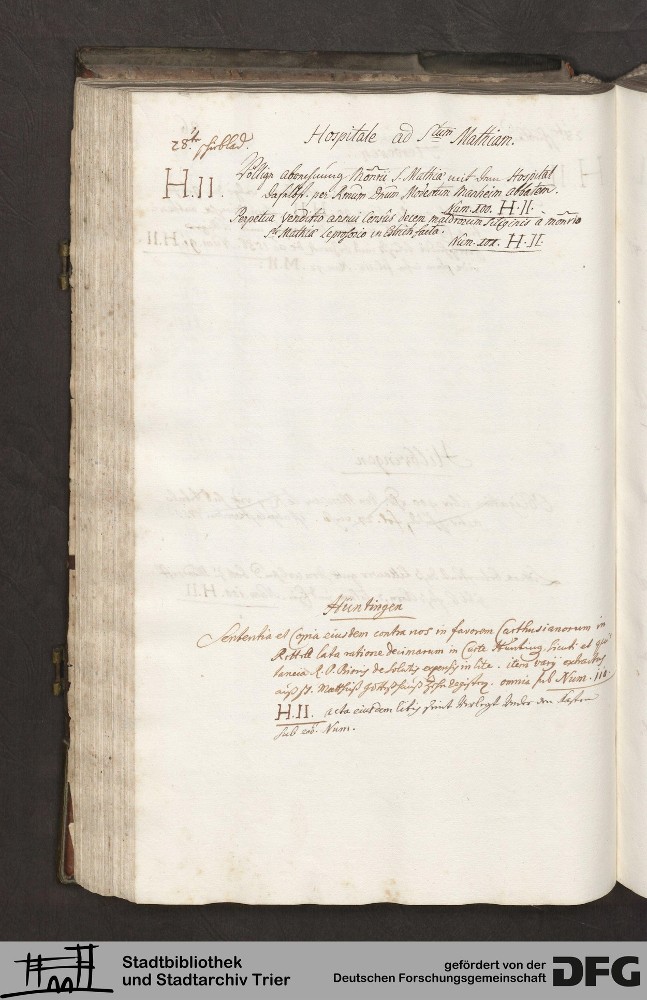 28te schublad.
Hospitale ad Stum Mathiam.
H.II.
Völlige abmessung Mõnrii S. Mathiæ mit dem Hospital
daselbst. per Rmum Dnum Modestum Manheim abbatem.
Num. H.II.
Perpetua Venditio annui Census decem maldrorum siliginis à monrio
St. Mathiæ Leprosorio in Estrich facta.
Num. H.II.
Huntingen
Sententia et Copia eiusdem contra nos in favorem Carthusianorum in
Rettel lata ratione decimarum in Hunting, sicuti et
tancia R. P. Prioris de solutis expensis in lite. item
auß st. Matthiß omnia sub Num. 110
H.II. acta eiusdem litis seint verlegt
sub eod. Num.
Stadtbibliothek
und Stadtarchiv Trier
gefördert von der
Deutschen Forschungsgemeinschaft
DFG